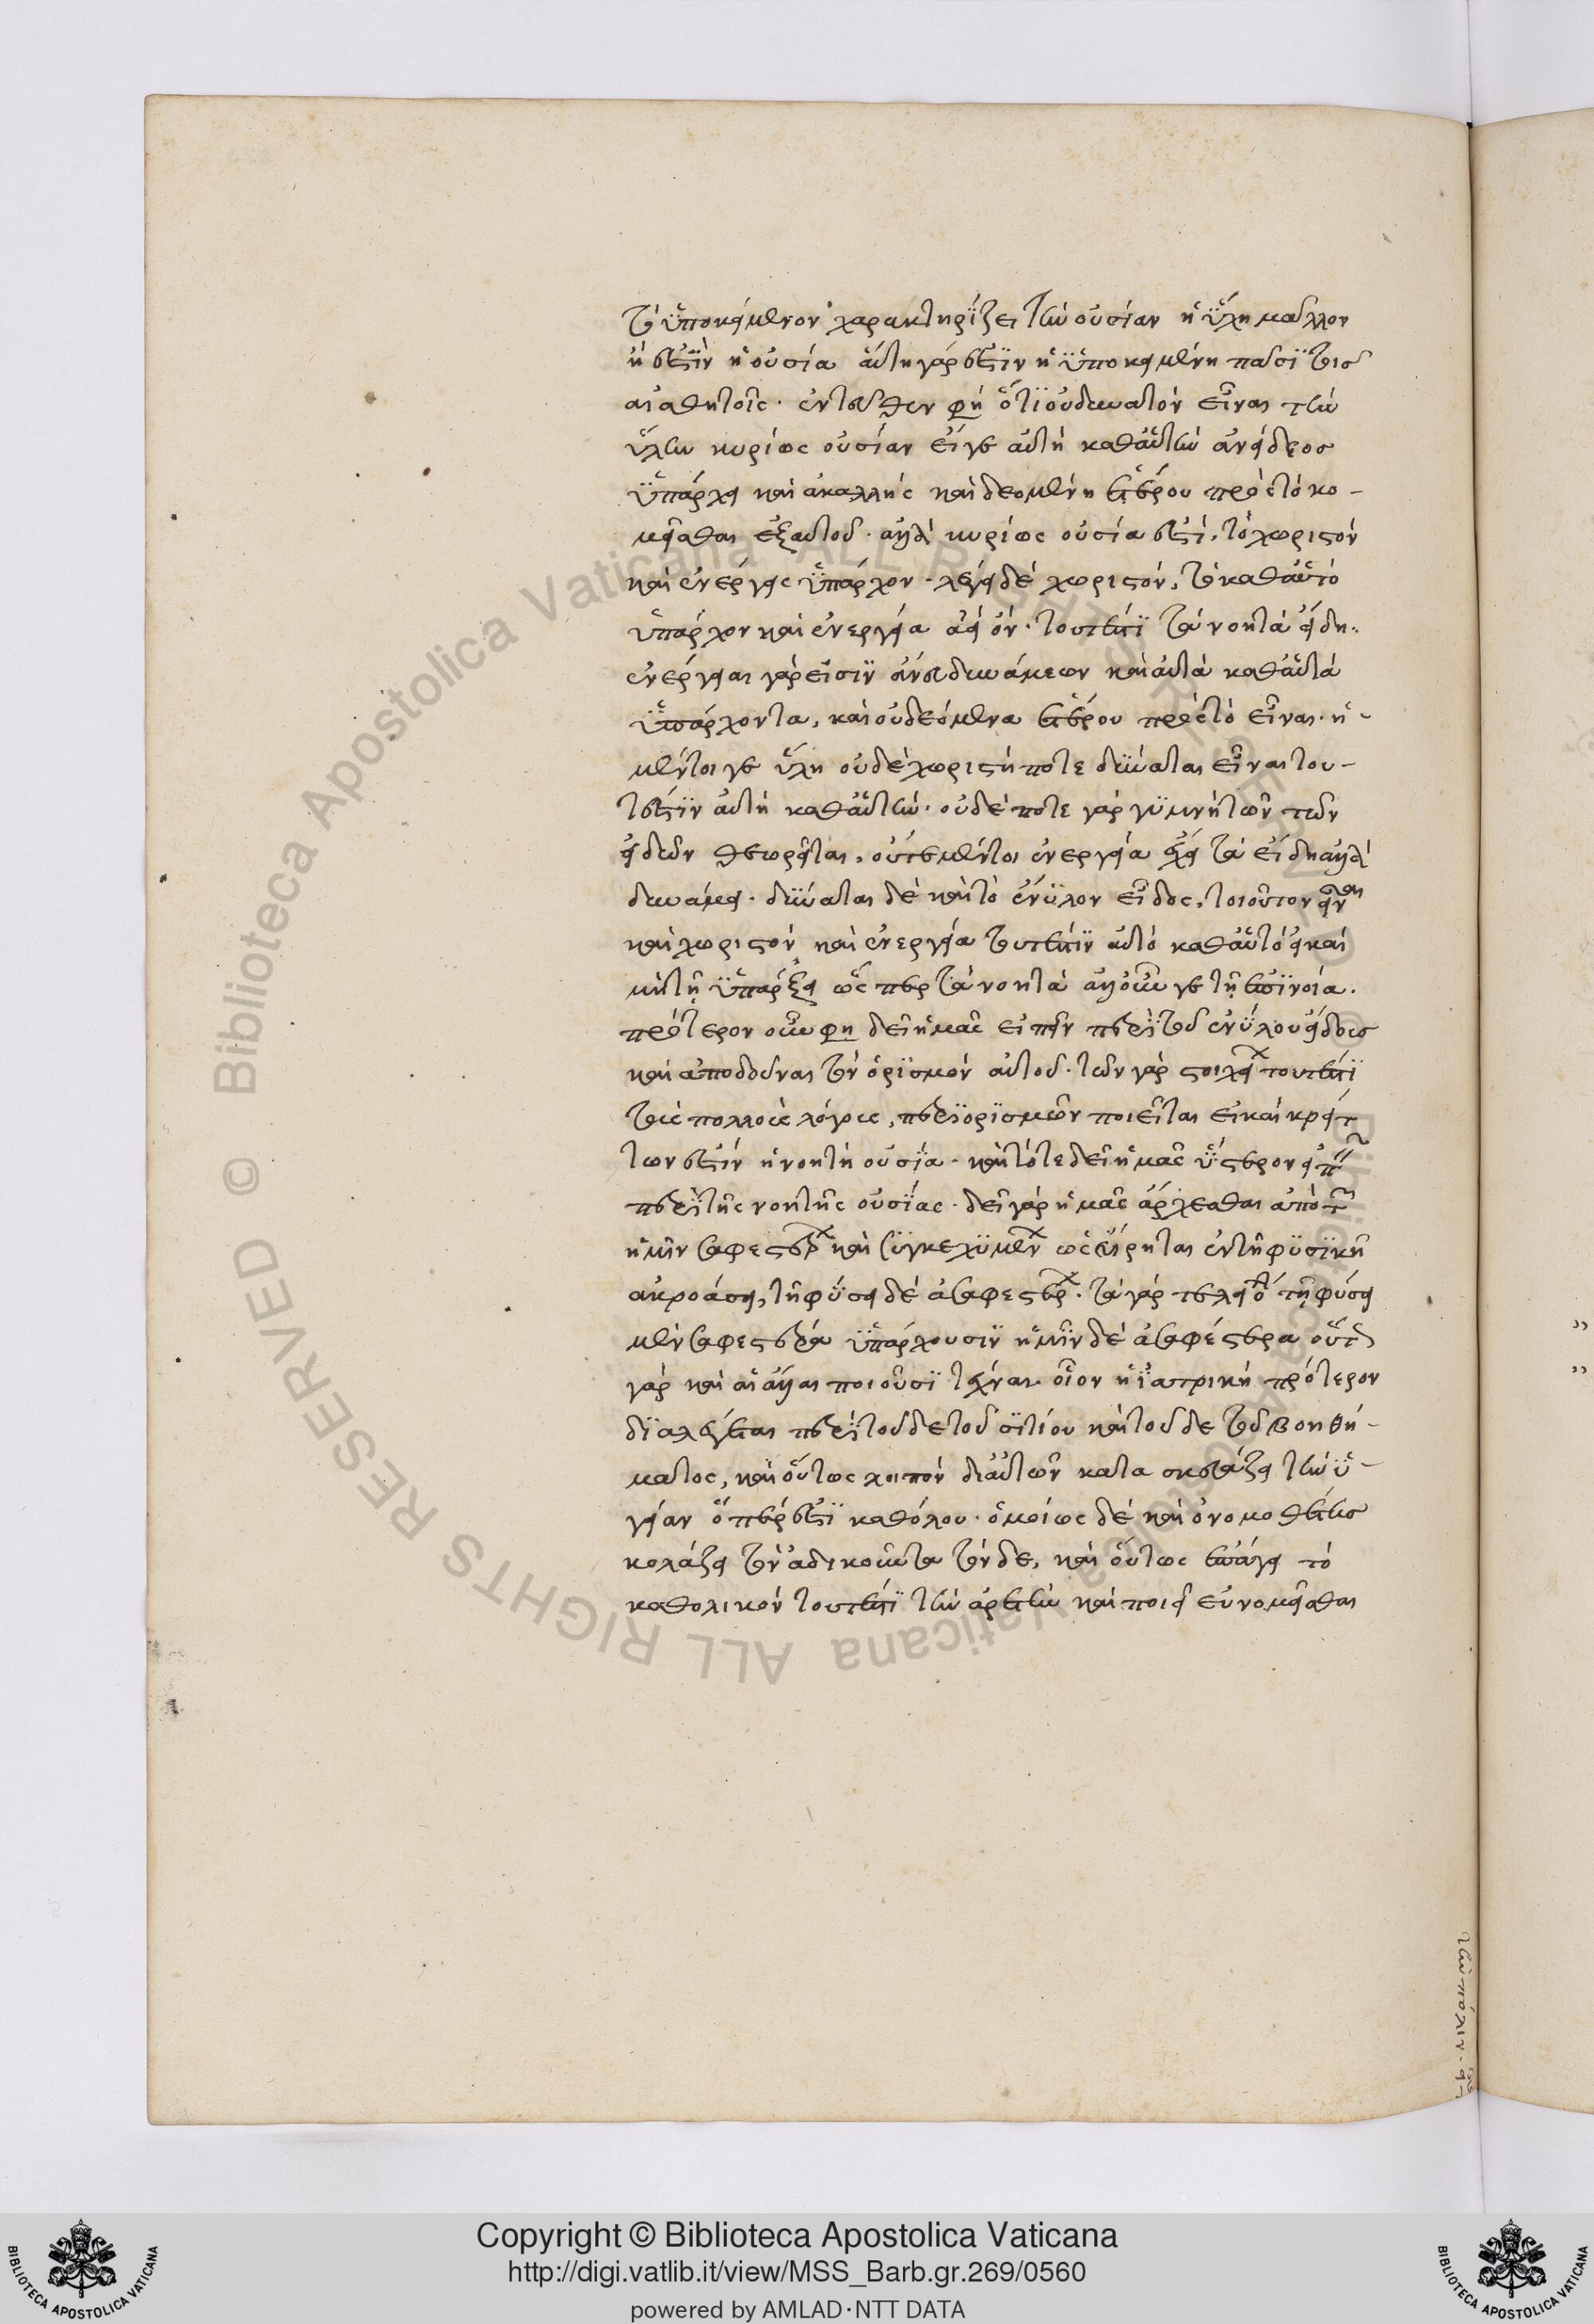 τὸ ὑποκείμενον χαρακτηρίζει τὴν οὐσίαν ἡ ὕλη μᾶλλον
ἡ ἐστὶν ἡ οὐσία αὕτη γάρ ἐστιν ἡ ὑποκειμένη πᾶσι τοῖς
αἰσθητοῖς. ἐντεῦθεν φη ὅτι οὐ δυνατὸν εἶναι τὴν
ὕλην κυρίως οὐσίαν εἴγε αὐτὴ καθ' αὑτὴν ἀνείδεος
ὑπάρχει καὶ ἀκαλλὴς καὶ δεομένη ἑτέρου πρὸς τὸ κο-
μεῖσθαι ἐξ αὐτοῦ. ἀλλὰ κυρίως οὐσία ἐστὶ, τὸ χωριστὸν
καὶ ἐνεργείᾳ ὑπάρχον. λέγει δὲ χωριστόν, τὸ καθ' αὑτὸ
ὑπάρχον καὶ ἐνεργείᾳ ἀεὶ ὄν. τουτέστι τὰ νοητὰ εἴδη.
ἐνέργειαι γάρ εἰσιν ἄνευ δυνάμεων καὶ αὐτὰ καθ' αὑτὰ
ὑπάρχοντα, καὶ οὐ δεόμενα ἑτέρου πρὸς τὸ εἶναι. ἡ
μέντοι γε ὕλη οὐδὲ χωριστή ποτε δύναται εἶναι του-
τέστιν αὐτὴ καθ' αὑτήν. οὐδέποτε γὰρ γυμνὴ τῶν
εἰδῶν θεωρεῖται, οὔτε μέντοι ἐνεργείᾳ ἔχει τὰ εἴδη ἀλλὰ
δυνάμει. δύναται δὲ καὶ τὸ ἔνυλον εἶδος, τοιοῦτον εἶναι
καὶ χωριστὸν καὶ ἐνεργείᾳ τουτέστιν αὐτὸ καθ' αὑτὸ εἰ καὶ
μὴ τῇ ὑπάρξει ὥσπερ τὰ νοητὰ ἀλλ' οὖν γε τῇ ἐπινοίᾳ.
πρότερον οὖν φη δεῖ ἡμᾶς εἰπεῖν περὶ τοῦ ἐνύλου εἴδους
καὶ ἀποδοῦναι τὸν ὁρισμὸν αὐτοῦ. τῶν γὰρ στοιχεί τουτέστι
τοὺς πολλοὺς λόγους, περὶ ὁρισμῶν ποιεῖται εἰ καὶ κρείτ
των ἐστὶν ἡ νοητὴ οὐσία. καὶ τότε δεῖ ἡμᾶς ὕστερον εἰπ
περὶ τῆς νοητῆς οὐσίας. δεῖ γὰρ ἡμᾶς ἄρχεσθαι ἀπὸ τ
ἡμῖν σαφεστέρ καὶ συγκεχυμέν ὡς εἴρηται ἐν τῇ φυσικῇ
ἀκροάσει, τῇ φύσει δὲ ἀσαφεστέρ. τὰ γὰρ τελειό τῇ φύσει
μὲν σαφέστερα ὑπάρχουσιν ἡμῖν δὲ ἀσαφέστερα οὕτ
γὰρ καὶ αἱ ἄλλαι ποιοῦσι τέχναι. οἷον ἡ ἰατρικὴ πρότερον
διαλέγεται περὶ τοῦδε τοῦ σιτίου καὶ τοῦδε τοῦ βοηθή-
ματος, καὶ οὕτως λοιπὸν δι' αὐτῶν κατασκευάζει τὴν ὑ-
γείαν ὅπερ ἐστὶ καθόλου. ὁμοίως δὲ καὶ ὁ νομοθέτης
κολάζει τὸν ἀδικοῦντα τόνδε, καὶ οὕτως ἐπάγει τὸ
καθολικὸν τουτέστι τὴν ἀρετὴν καὶ ποιεῖ εὐνομεῖσθαι
τὴν πόλιν
Copyright © Biblioteca Apostolica Vaticana
http://digi.vatlib.it/view/MSS_Barb.gr.269/0560
powered by AMLAD·NTT DATA